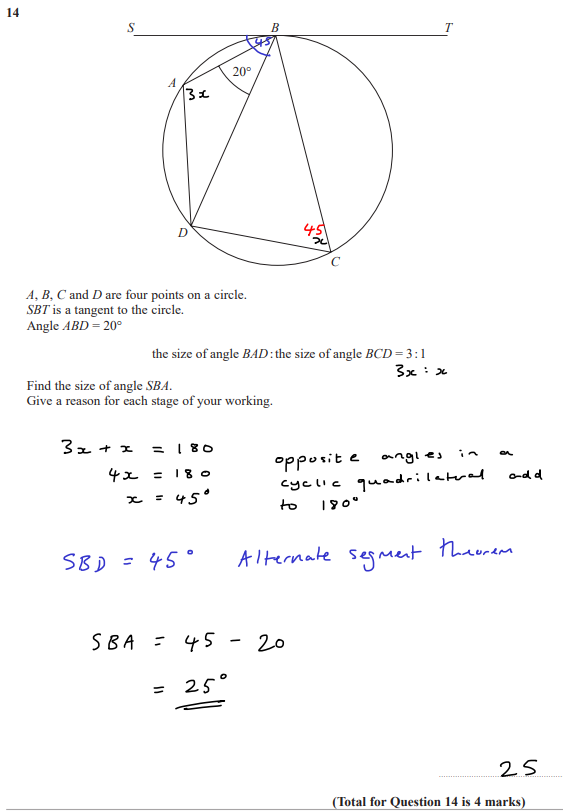 14
S B T
45
20°
A
3x
45
D x
C
A, B, C and D are four points on a circle.
SBT is a tangent to the circle.
Angle ABD = 20°
the size of angle BAD : the size of angle BCD = 3 : 1
3x : x
Find the size of angle SBA.
Give a reason for each stage of your working.
3x + x = 180
4x = 180
x = 45°
opposite angles in a
cyclic quadrilateral add
to 180°
SBD = 45° Alternate segment theorem
SBA = 45 - 20
= 25°
25
(Total for Question 14 is 4 marks)